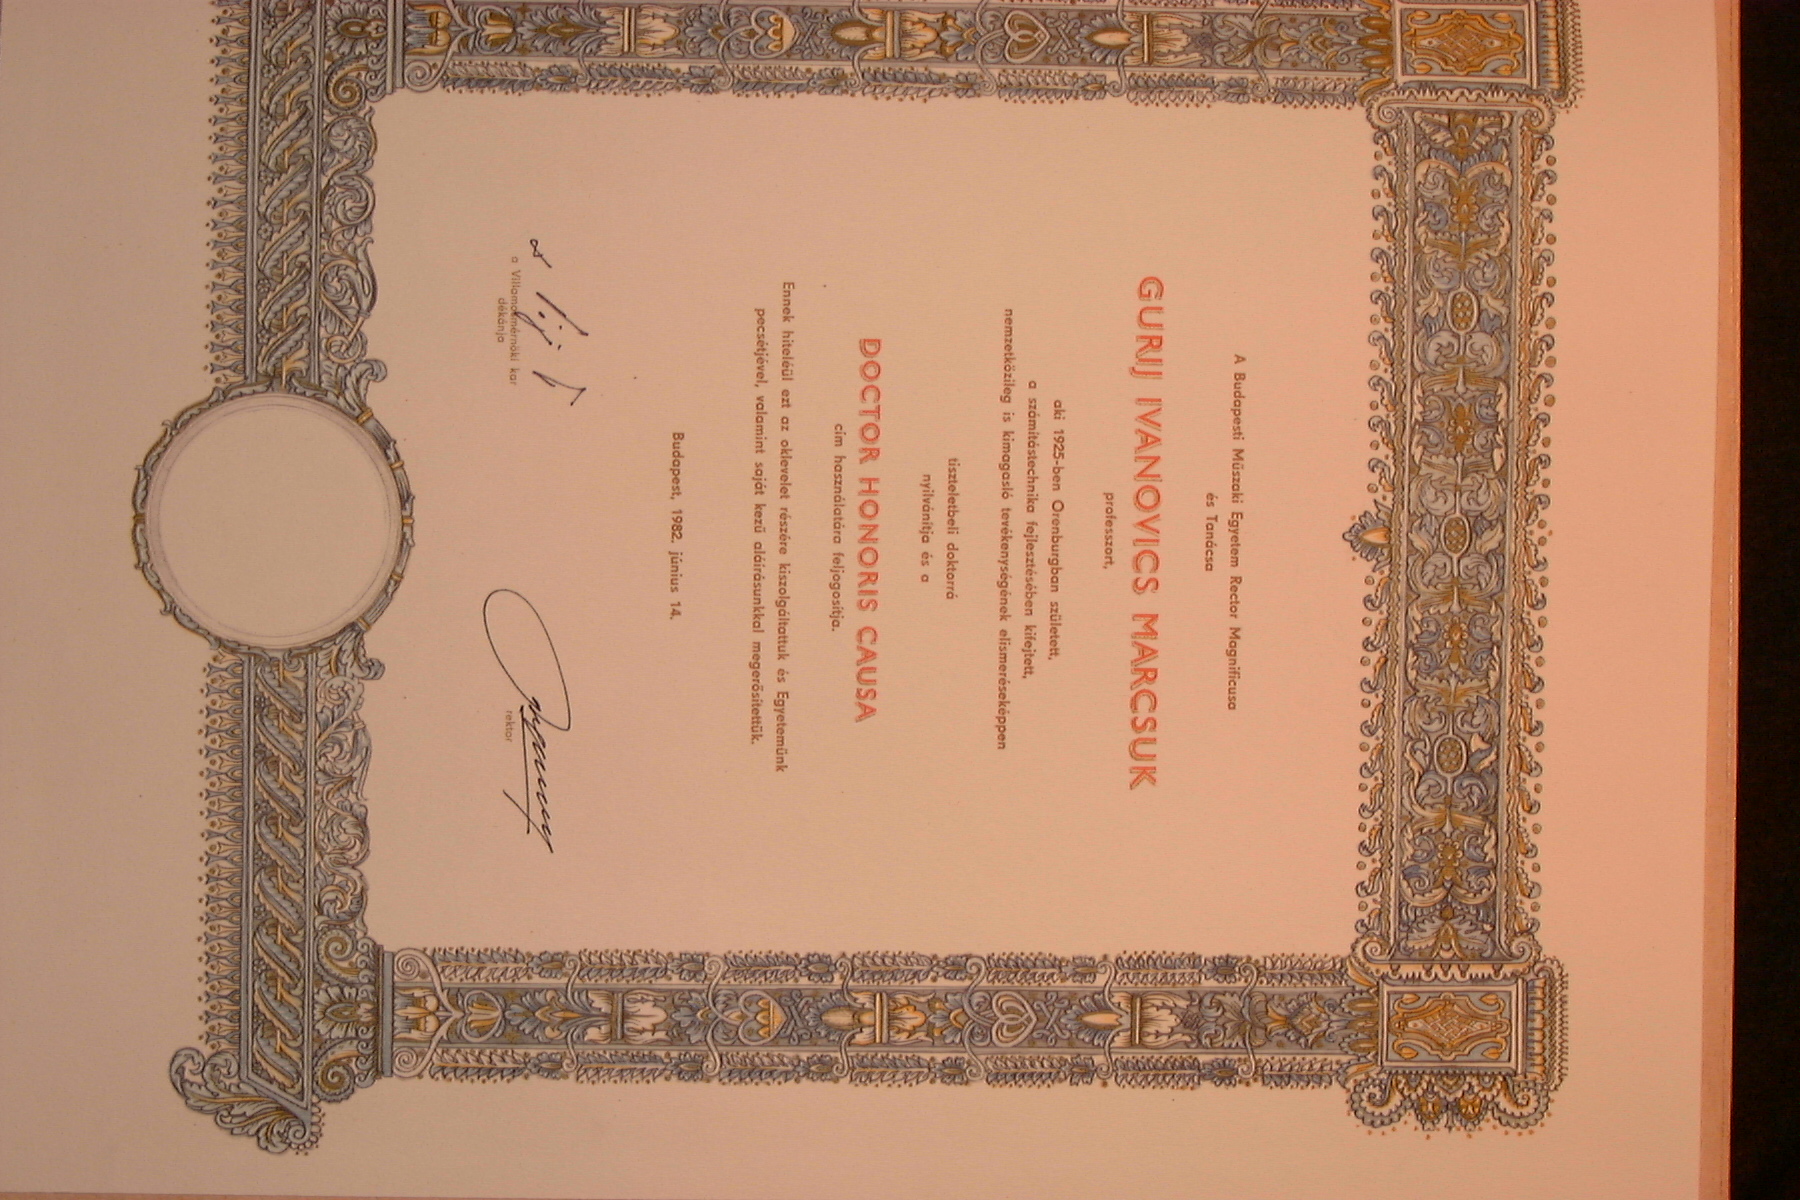 A Budapesti Műszaki Egyetem Rector Magnificusa
és Tanácsa
GURIJ IVANOVICS MARCSUK
professzort,
aki 1925-ben Orenburgban született,
a számítástechnika fejlesztésében kifejtett,
nemzetközileg is kimagasló tevékenységének elismeréseképpen
tiszteletbeli doktorrá
nyilvánítja és a
DOCTOR HONORIS CAUSA
cím használatára feljogosítja.
Ennek hiteléül ezt az oklevelet részére kiszolgáltattuk és Egyetemünk
pecsétjével, valamint saját kezű aláírásunkkal megerősítettük.
Budapest, 1982. június 14.
a Villamosmérnöki kar
dékánja
rektor